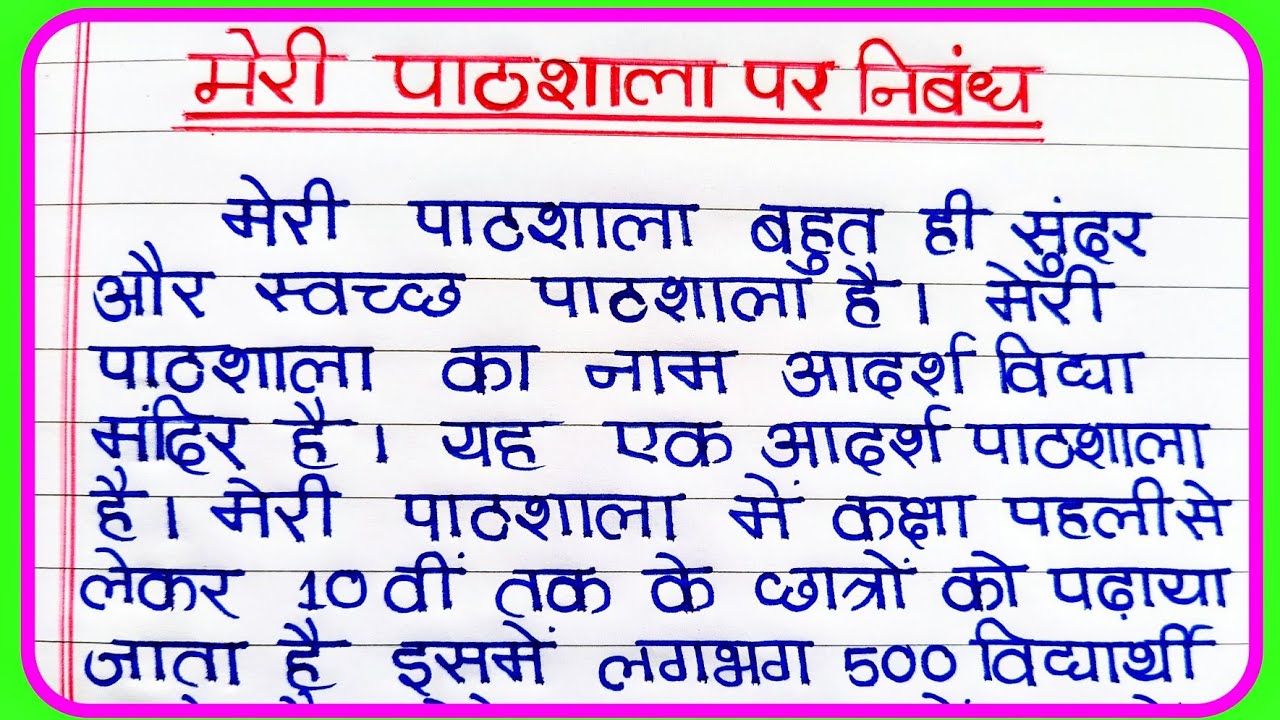 मेरी पाठशाला पर निबंध
मेरी पाठशाला बहुत ही सुंदर
और स्वच्छ पाठशाला है। मेरी
पाठशाला का नाम आदर्श विद्या
मंदिर है। यह एक आदर्श पाठशाला
है। मेरी पाठशाला में कक्षा पहली से
लेकर 10 वीं तक के छात्रों को पढ़ाया
जाता है इसमें लगभग 500 विद्यार्थी